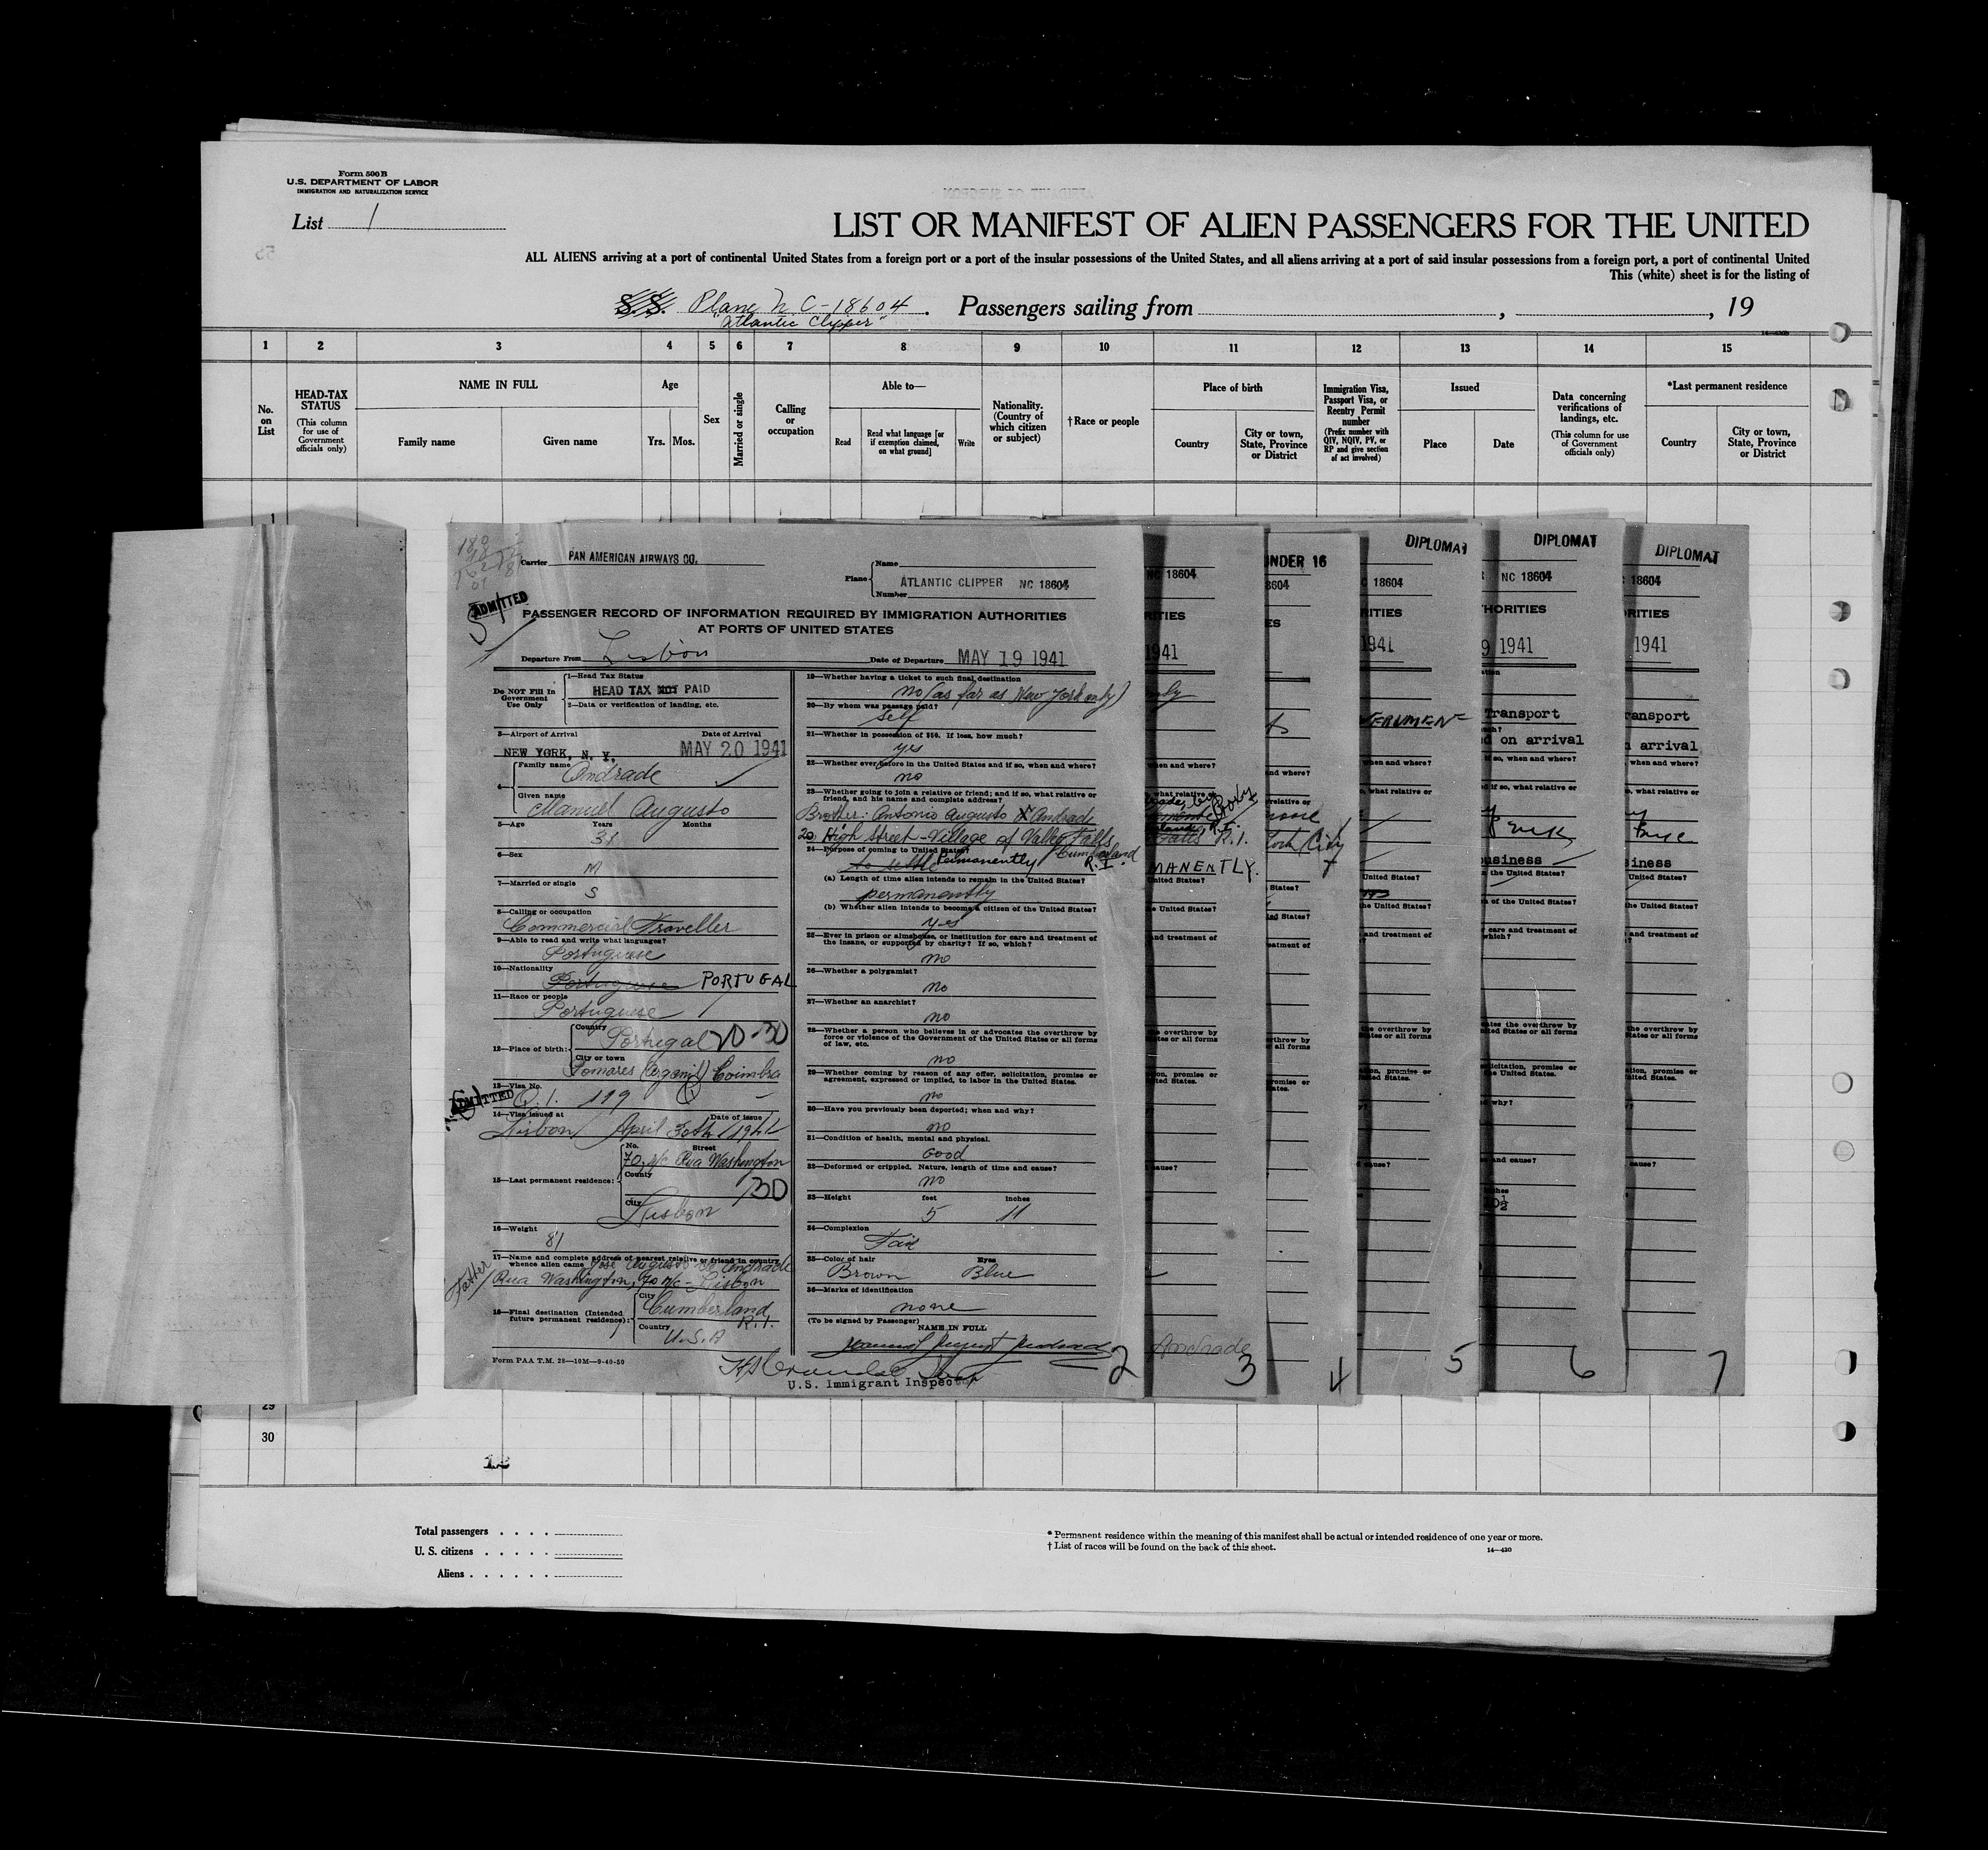 Form 500B
U.S. DEPARTMENT OF LABOR
IMMIGRATION AND NATURALIZATION SERVICE
List 1
LIST OR MANIFEST OF ALIEN PASSENGERS FOR THE UNITED
ALL ALIENS arriving at a port of continental United States from a foreign port or a port of the insular possessions of the United States, and all aliens arriving at a port of said insular possessions from a foreign port, a port of continental United
This (white) sheet is for the listing of
S.S. Plane NC-18604. Passengers sailing from , , 19
"Atlantic Clipper"
1 2 3 4 5 6 7 8 9 10 11 12 13 14 15
No. on List
HEAD-TAX STATUS
(This column for use of Government officials only)
NAME IN FULL
Family name
Given name
Age
Yrs. Mos.
Sex
Married or single
Calling or occupation
Able to—
Read
Read what language [or if exemption claimed, on what ground]
Write
Nationality. (Country of which citizen or subject)
†Race or people
Place of birth
Country
City or town, State, Province or District
Immigration Visa, Passport Visa, or Reentry Permit number
(Prefix number with QIV, NQIV, PV, or RP and give section of act involved)
Issued
Place
Date
Data concerning verifications of landings, etc.
(This column for use of Government officials only)
*Last permanent residence
Country
City or town, State, Province or District
1
Carrier PAN AMERICAN AIRWAYS CO.
Plane Name
ATLANTIC CLIPPER NC 18604
Number
ADMITTED
PASSENGER RECORD OF INFORMATION REQUIRED BY IMMIGRATION AUTHORITIES
AT PORTS OF UNITED STATES
Departure From Lisbon Date of Departure MAY 19 1941
Do NOT Fill In Government Use Only
1—Head Tax Status
HEAD TAX NOT PAID
2—Data or verification of landing, etc.
3—Airport of Arrival Date of Arrival
NEW YORK, N. Y. MAY 20 1941
4— Family name Andrade
Given name
Manuel Augusto
5—Age Years Months
31
6—Sex
M
7—Married or single
S
8—Calling or occupation
Commercial Traveller
9—Able to read and write what languages?
Portuguese
10—Nationality
Portuguese PORTUGAL
11—Race or people
Portuguese
12—Place of birth: Country
Portugal 20-30
City or town
Pomares (Arganil) Coimbra
13—Visa No.
ADMITTED Q.I. 119
14—Visa issued at Date of issue
Lisbon April 30th 1941
15—Last permanent residence: No. Street
70, r/c Rua Washington
County
30
City
Lisbon
16—Weight
81
17—Name and complete address of nearest relative or friend in country
whence alien came José Augusto de Andrade
Father Rua Washington, 70 r/c - Lisbon
18—Final destination (Intended future permanent residence): City
Cumberland
R.I.
Country
U.S.A
Form PAA T.M. 28—10M—9-40-50
19—Whether having a ticket to such final destination
no (as far as New York only)
20—By whom was passage paid?
self
21—Whether in possession of $50. If less, how much?
yes
22—Whether ever before in the United States and if so, when and where?
no
23—Whether going to join a relative or friend; and if so, what relative or
friend, and his name and complete address?
Brother: Antonio Augusto Andrade
20, High Street - Village of Valley Falls
Cumberland R.I.
24—Purpose of coming to United States?
to settle Permanently
(a) Length of time alien intends to remain in the United States?
permanently
(b) Whether alien intends to become a citizen of the United States?
yes
25—Ever in prison or almshouse, or institution for care and treatment of
the insane, or supported by charity? If so, which?
no
26—Whether a polygamist?
no
27—Whether an anarchist?
no
28—Whether a person who believes in or advocates the overthrow by
force or violence of the Government of the United States or all forms
of law, etc.
no
29—Whether coming by reason of any offer, solicitation, promise or
agreement, expressed or implied, to labor in the United States.
no
30—Have you previously been deported; when and why?
no
31—Condition of health, mental and physical.
Good
32—Deformed or crippled. Nature, length of time and cause?
no
33—Height feet inches
5 11
34—Complexion
Fair
35—Color of hair Eyes
Brown Blue
36—Marks of identification
none
(To be signed by Passenger)
NAME IN FULL
U.S. Immigrant Inspector
2
NC 18604
1941
MANENTLY.
Falls R.I.
Andrade
3
UNDER 16
8604
York City
4
DIPLOMAT
18604
1941
5
DIPLOMAT
NC 18604
HORITIES
9 1941
Transport
on arrival
usiness
6
DIPLOMAT
18604
1941
ransport
arrival
siness
7
29
30
12
Total passengers . . . .
U. S. citizens . . . . .
Aliens . . . . . .
* Permanent residence within the meaning of this manifest shall be actual or intended residence of one year or more.
† List of races will be found on the back of this sheet.
14—430